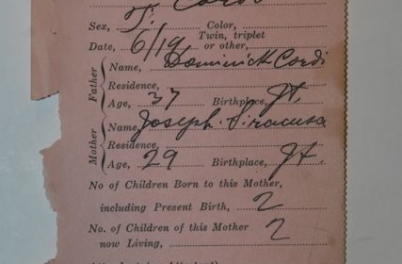 Cordi
Sex, F. Color,
Twin, triplet
Date, 6/19 or other,
Father
Name, Dominick Cordi
Residence,
Age, 37 Birthplace, It.
Mother
Name, Joseph. Siracusa
Residence
Age, 29 Birthplace, It.
No of Children Born to this Mother,
including Present Birth, 2
No. of Children of this Mother
now Living, 2